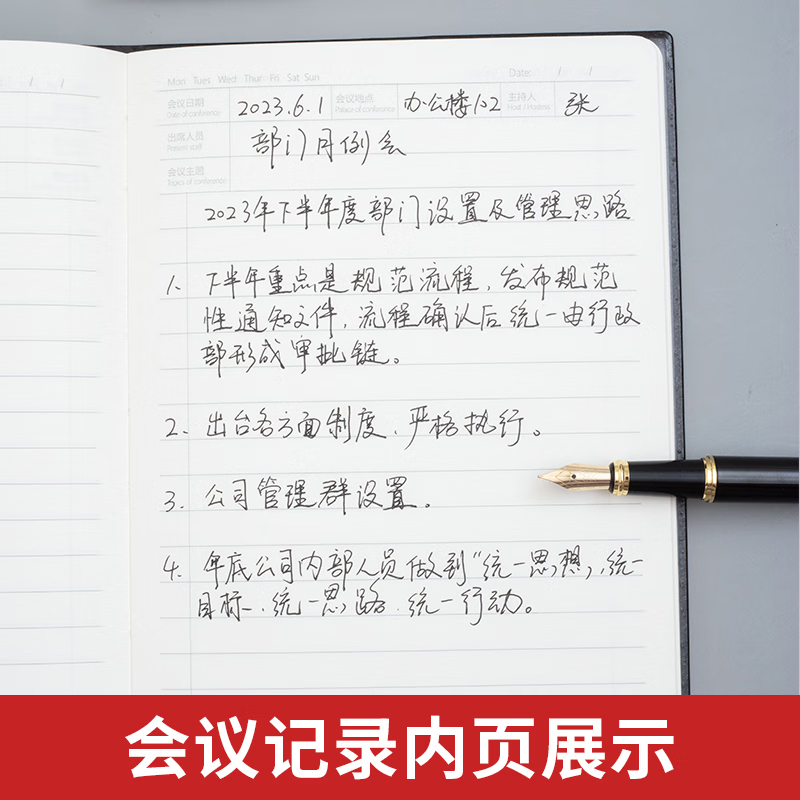 Mon Tues Wed Thur Fri Sat Sun Date: / /
会议日期 2023.6.1 会议地点 办公楼102 主持人 张
Date of conference Palace of conference Host / Hostess
出席人员 部门月例会
Present staff
会议主题
Topics of conference
2023年下半年度部门设置及管理思路
1、下半年重点是规范流程，发布规范
性通知文件，流程确认后统一由行政
部形成审批链。
2、出台各方面制度、严格执行。
3、公司管理群设置。
4、年底公司内部人员做到“统一思想，统一
目标、统一思路、统一行动。
会议记录内页展示